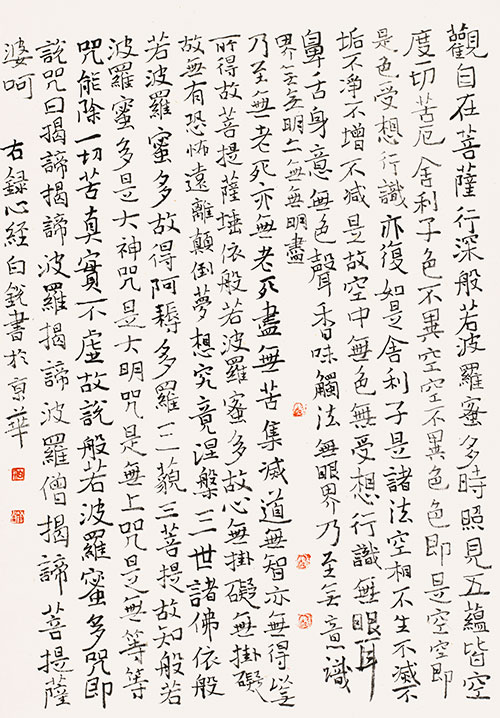 觀自在菩薩行深般若波羅蜜多時照見五蘊皆空
度一切苦厄舍利子色不異空空不異色色即是空空即
是色受想行識亦復如是舍利子是諸法空相不生不滅不
垢不淨不增不减是故空中無色無受想行識無眼耳
鼻舌身意無色聲香味觸法無眼界乃至无意識
界无無明亦無無明盡
乃至無老死亦無老死盡無苦集滅道無智亦無得以无
所得故菩提薩埵依般若波羅蜜多故心無掛礙無掛礙
故無有恐怖遠離顛倒夢想究竟涅槃三世諸佛依般
若波羅蜜多故得阿耨多羅三藐三菩提故知般若
波羅蜜多是大神咒是大明咒是無上咒是无等等
咒能除一切苦真實不虛故說般若波羅蜜多咒即
說咒曰揭諦揭諦波羅揭諦波羅僧揭諦菩提薩
婆呵 右録心經白銳書於京華